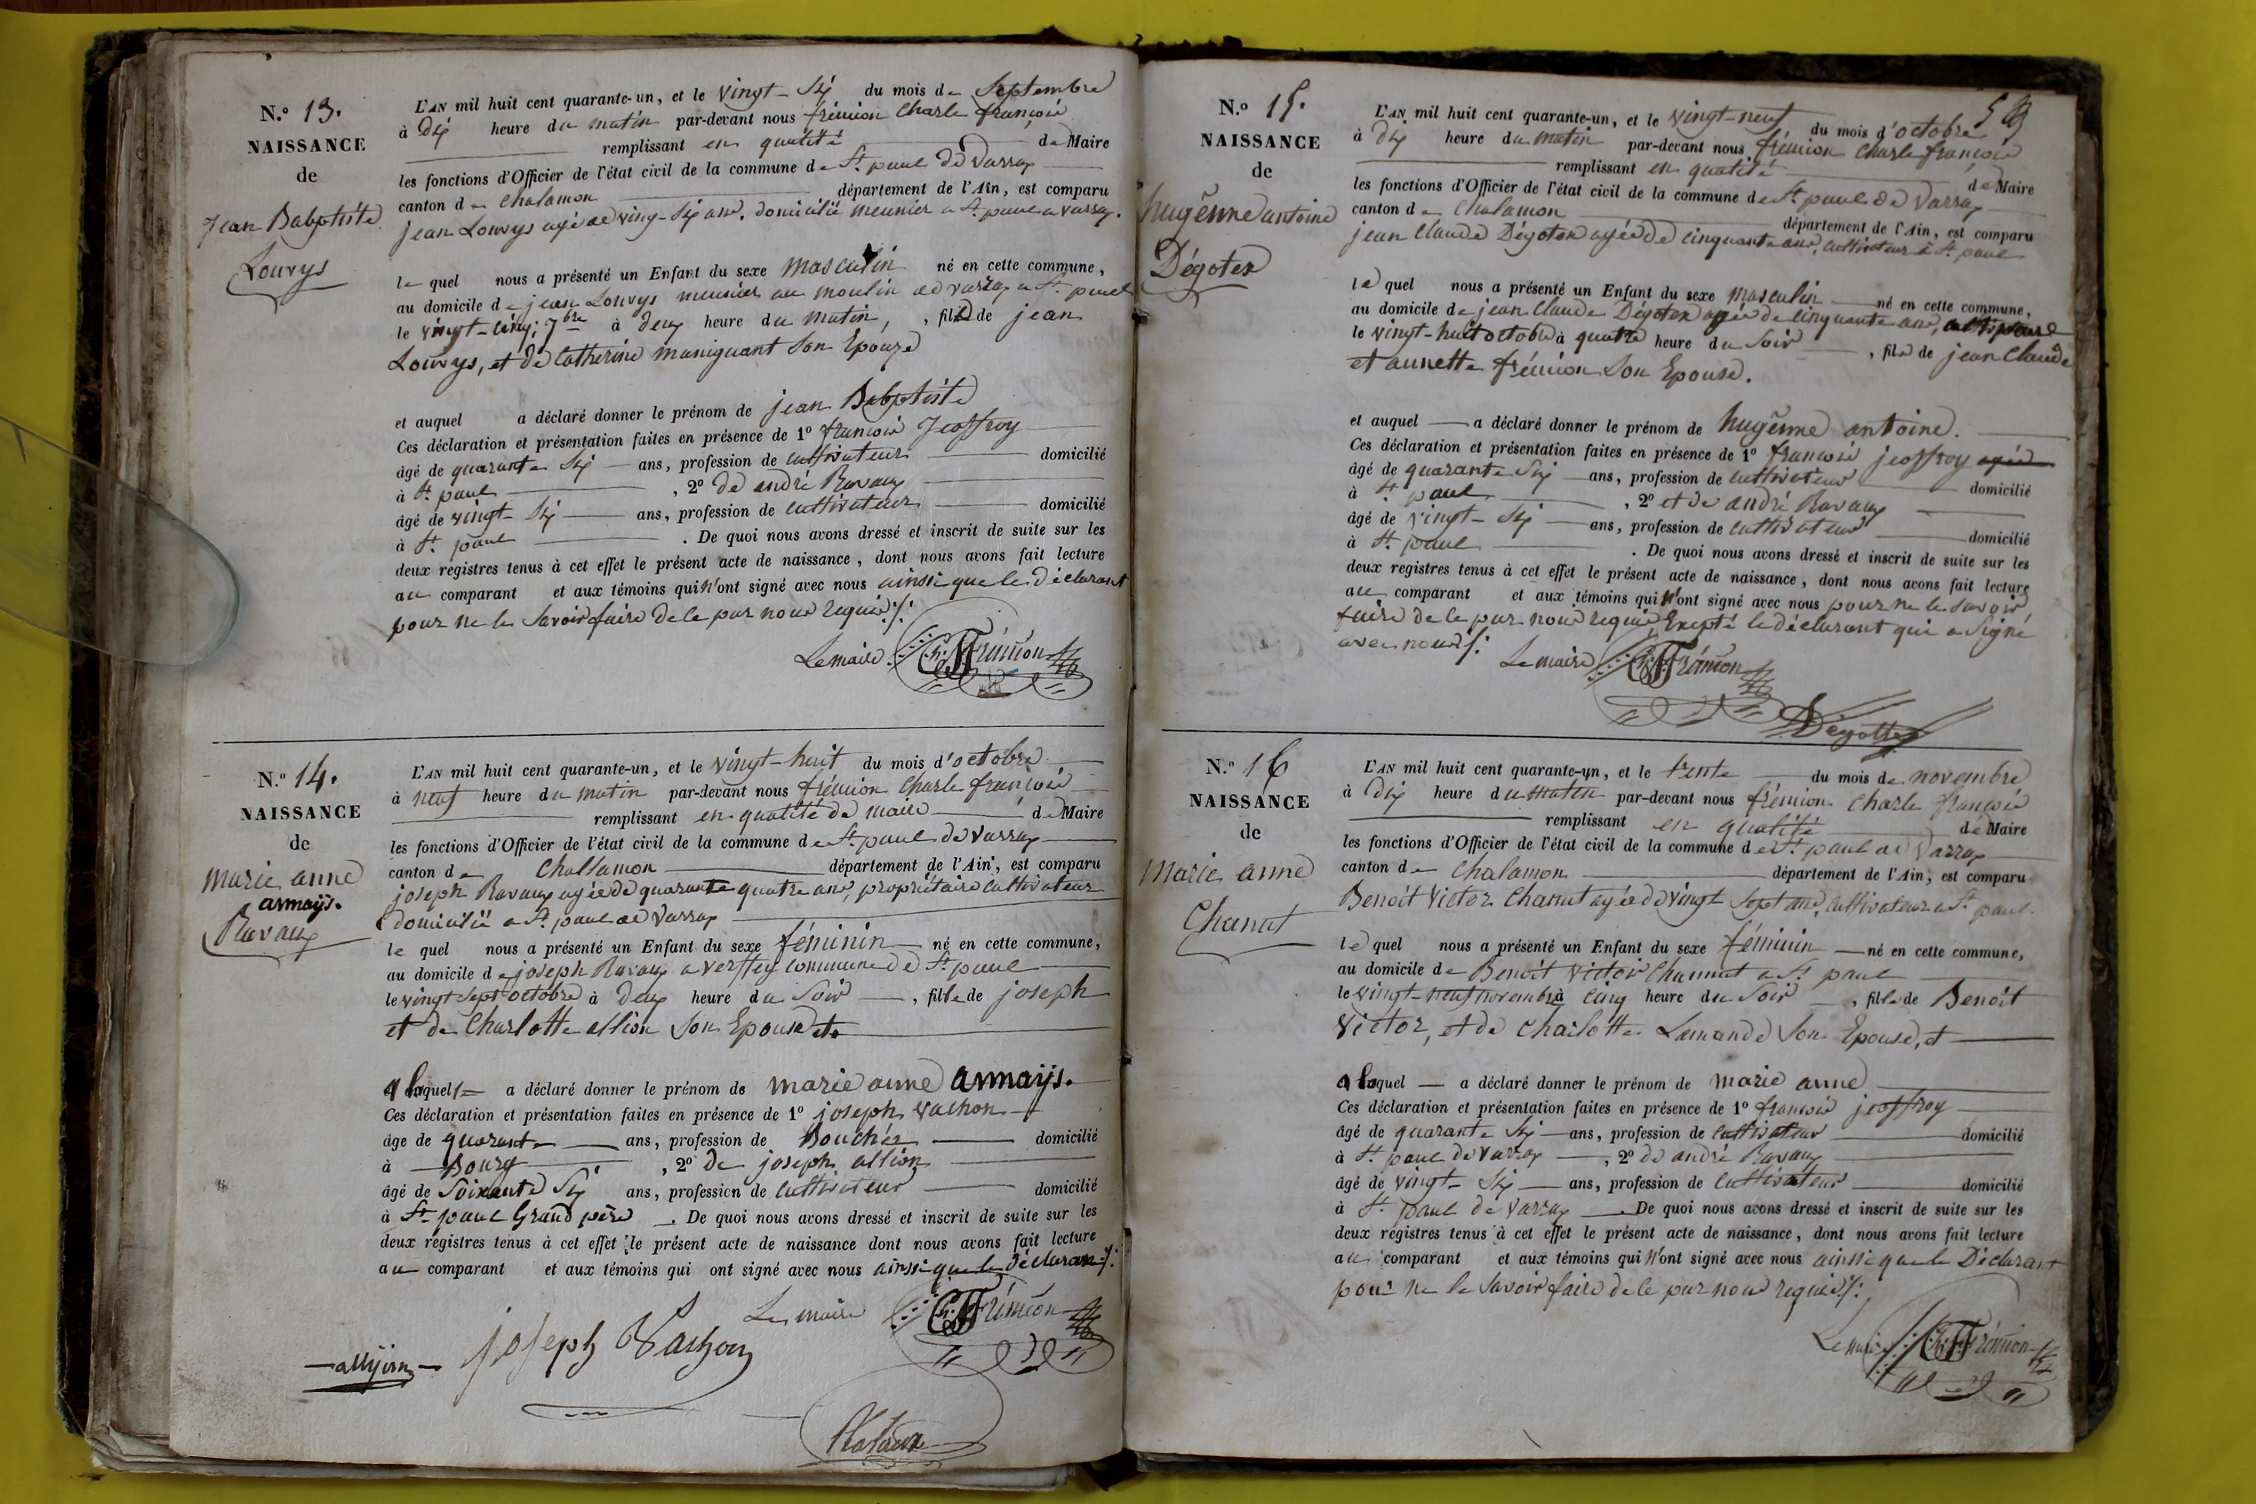 N.º 13.
NAISSANCE
de
Jean Babptiste
Louvys
L'AN mil huit cent quarante-un, et le vingt-six du mois de Septembre
à dix heure du matin par-devant nous frémion Charle françois
remplissant en qualité de Maire
les fonctions d'Officier de l'état civil de la commune de St. paul de Varrax
canton de Chalamon département de l'Ain, est comparu
jean Louvys agé de ving-six ans, domicilié meunier a St. paul a varrax.
le quel nous a présenté un Enfant du sexe masculin né en cette commune,
au domicile de jean Louvys meunier au moulin de varrax a St. paul
le vingt-cinq 7bre à deux heure du matin, , fils de jean
Louvys, et de Catherine maniguant Son Epouze
et auquel a déclaré donner le prénom de jean Babptiste
Ces déclaration et présentation faites en présence de 1º françois Jeoffroy
âgé de quarante Six ans, profession de cultivateur domicilié
à St. paul , 2º de andré Ravaux
âgé de vingt-Six ans, profession de cultivateur domicilié
à St. paul . De quoi nous avons dressé et inscrit de suite sur les
deux registres tenus à cet effet le présent acte de naissance, dont nous avons fait lecture
au comparant et aux témoins qui n'ont signé avec nous ainsi que le déclarant
pour ne le Savoir faire de le par nous requis
Le maire Ch. F. Frémion
N.º 14.
NAISSANCE
de
marie anne
armaÿs.
Ravaux
L'AN mil huit cent quarante-un, et le vingt-huit du mois d'octobre
à neuf heure du matin par-devant nous frémion Charle françois
remplissant en qualité de maire de Maire
les fonctions d'Officier de l'état civil de la commune de St. paul de Varrax
canton de Challamon département de l'Ain, est comparu
joseph Ravaux agée de quarante quatre ans, propriétaire Cultivateur
domicilié a St. paul de Varrax
le quel nous a présenté un Enfant du sexe féminin né en cette commune,
au domicile de joseph Ravaux a commune de St. paul
le vingt Sept octobre à deux heure du Soir , fille de joseph
et de Charlotte allion Son Epouse et
a laquelle a déclaré donner le prénom de marie anne armaÿs.
Ces déclaration et présentation faites en présence de 1º joseph vachon
âgé de quarante ans, profession de Boucher domicilié
à Bourg , 2º de joseph allion
âgé de Soixante Six ans, profession de Cultivateur domicilié
à St. paul Grand père . De quoi nous avons dressé et inscrit de suite sur les
deux registres tenus à cet effet le présent acte de naissance dont nous avons fait lecture
au comparant et aux témoins qui ont signé avec nous ainsi que le Déclarant
Le maire Ch. F. Frémion
allyion joseph Vachon
N.º 15.
NAISSANCE
de
hugenne antoine
Dégotex
L'AN mil huit cent quarante-un, et le vingt-neuf du mois d'octobre
à dix heure du matin par-devant nous frémion Charle françois
remplissant en qualité de Maire
les fonctions d'Officier de l'état civil de la commune de St. paul de Varrax
canton de Chalamon département de l'Ain, est comparu
jean Claude Dégotex agée de cinquante ans, cultivateur à St. paul
le quel nous a présenté un Enfant du sexe masculin né en cette commune,
au domicile de jean Claude Dégotex agée de cinquante ans,
le vingt-huit octobre à quatre heure du Soir , fils de jean Claude
et annette frémion Son Epouse.
et auquel a déclaré donner le prénom de hugenne antoine.
Ces déclaration et présentation faites en présence de 1º françois jeoffroy agée
âgé de quarante Six ans, profession de Cultivateur domicilié
à St. paul , 2º et de andré Ravaux
âgé de vingt-Six ans, profession de Cultivateur domicilié
à St. paul . De quoi nous avons dressé et inscrit de suite sur les
deux registres tenus à cet effet le présent acte de naissance, dont nous avons fait lecture
au comparant et aux témoins qui n'ont signé avec nous pour ne le savoir
faire de le par nous requis Exepté le déclarant qui a Signé
avec nous
Le maire Ch. F. Frémion
Dégottex
N.º 16
NAISSANCE
de
Marie anne
Chanut
L'AN mil huit cent quarante-un, et le trente du mois de novembre
à dix heure du matin par-devant nous frémion Charle françois
remplissant en qualité de Maire
les fonctions d'Officier de l'état civil de la commune de St. paul de Varrax
canton de Chalamon département de l'Ain, est comparu
Benoit Victor Chanut agée de vingt Sept ans, Cultivateur a St. paul.
le quel nous a présenté un Enfant du sexe féminin né en cette commune,
au domicile de Benoit Victoir Channut a St. paul
le vingt-neuf novembre à cinq heure du Soir , fille de Benoit
Victor, et de Charlotte Lamande Son Epouse, et
a laquel a déclaré donner le prénom de marie anne
Ces déclaration et présentation faites en présence de 1º françois jeoffroy
âgé de quarante Six ans, profession de Cultivateur domicilié
à St. paul de varrax , 2º de andré Ravaux
âgé de vingt-Six ans, profession de Cultivateur domicilié
à St. paul de Varrax . De quoi nous avons dressé et inscrit de suite sur les
deux registres tenus à cet effet le présent acte de naissance, dont nous avons fait lecture
au comparant et aux témoins qui n'ont signé avec nous ainssi que le Déclarant
pour ne le Savoir faire de le par nous requis
Le maire Ch. F. Frémion